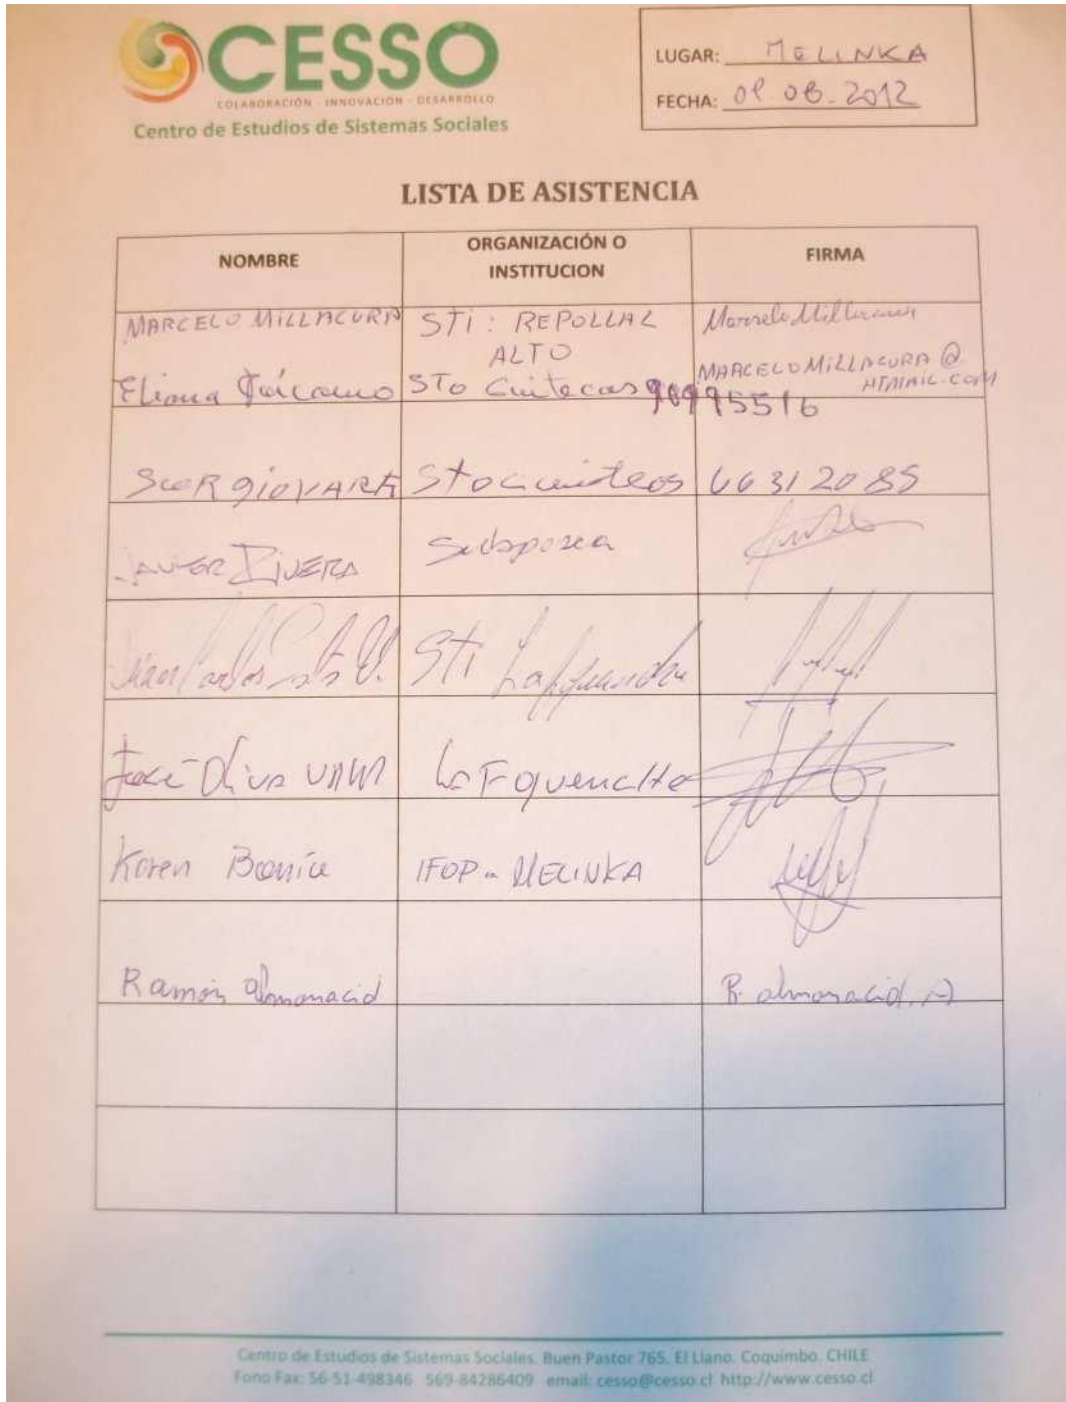 CESSO
COLABORACIÓN - INNOVACIÓN - DESARROLLO
Centro de Estudios de Sistemas Sociales
LUGAR: MELINKA
FECHA: 08.2012
LISTA DE ASISTENCIA
NOMBRE ORGANIZACIÓN O INSTITUCION FIRMA
MARCELO MILLACURA STI: REPOLLAL Marcelo Millacura
ALTO
MARCELOMILLACURA@
HTMAIL.COM
Eliana STO 90995516
SERGIO VARA STO 66312085
JAVIER RIVERA Subpesca
Juan Carlos STI
José
Karen IFOP - MELINKA
Ramón Almonacid R. almonacid. A
Centro de Estudios de Sistemas Sociales. Buen Pastor 765. El Llano. Coquimbo. CHILE
Fono Fax: 56-51-498346 569-84286409 email: cesso@cesso.cl http://www.cesso.cl